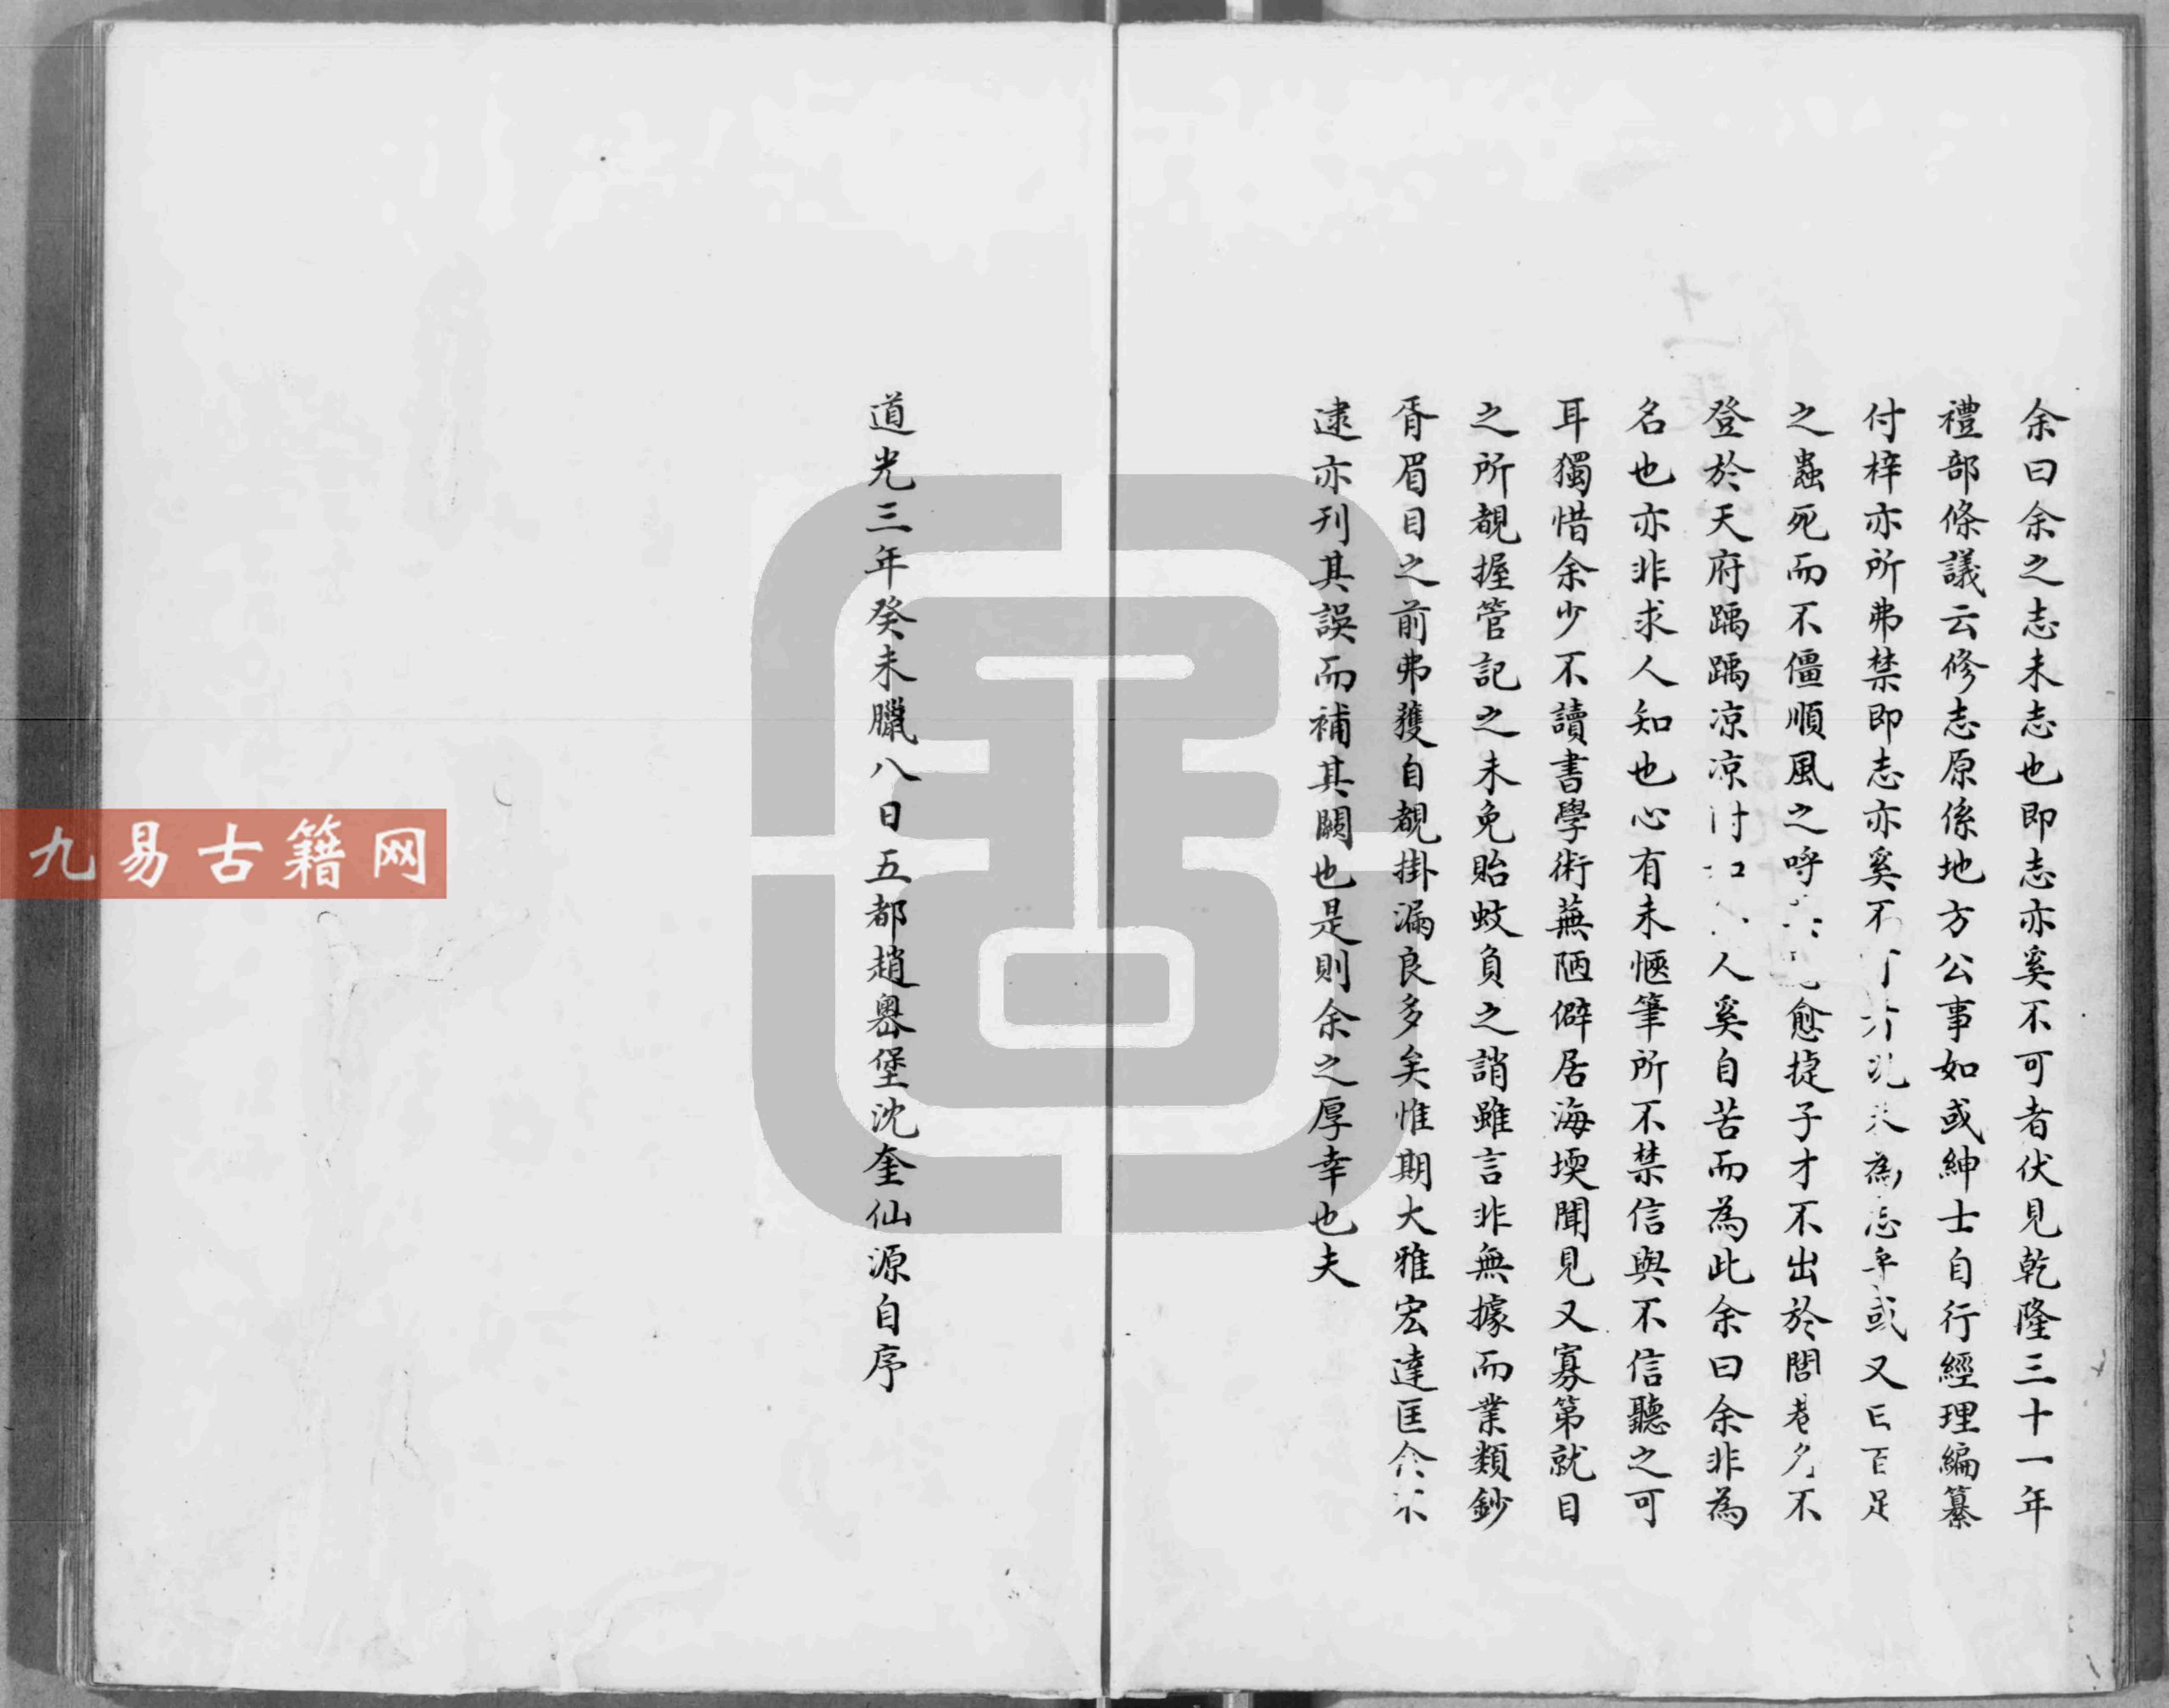 余曰余之志未志也即志亦奚不可者伏見乾隆三十一年
禮部條議云修志原係地方公事如或紳士自行經理編纂
付梓亦所弗禁即志亦奚不可為志乎或又曰百足
之蟲死而不僵順風之呼愈捷子才不出於閭巷名不
登於天府踽踽凉凉人奚自苦而為此余曰余非為
名也亦非求人知也心有未愜筆所不禁信與不信聽之可
耳獨惜余少不讀書學術蕪陋僻居海堧聞見又寡第就目
之所覩握管記之未免貽蚊負之誚雖言非無據而業類鈔
胥眉目之前弗獲自覩掛漏良多矣惟期大雅宏達匡余不
逮亦刊其誤而補其闕也是則余之厚幸也夫
道光三年癸未臘八日五都趙嶴堡沈奎仙源自序
九易古籍网